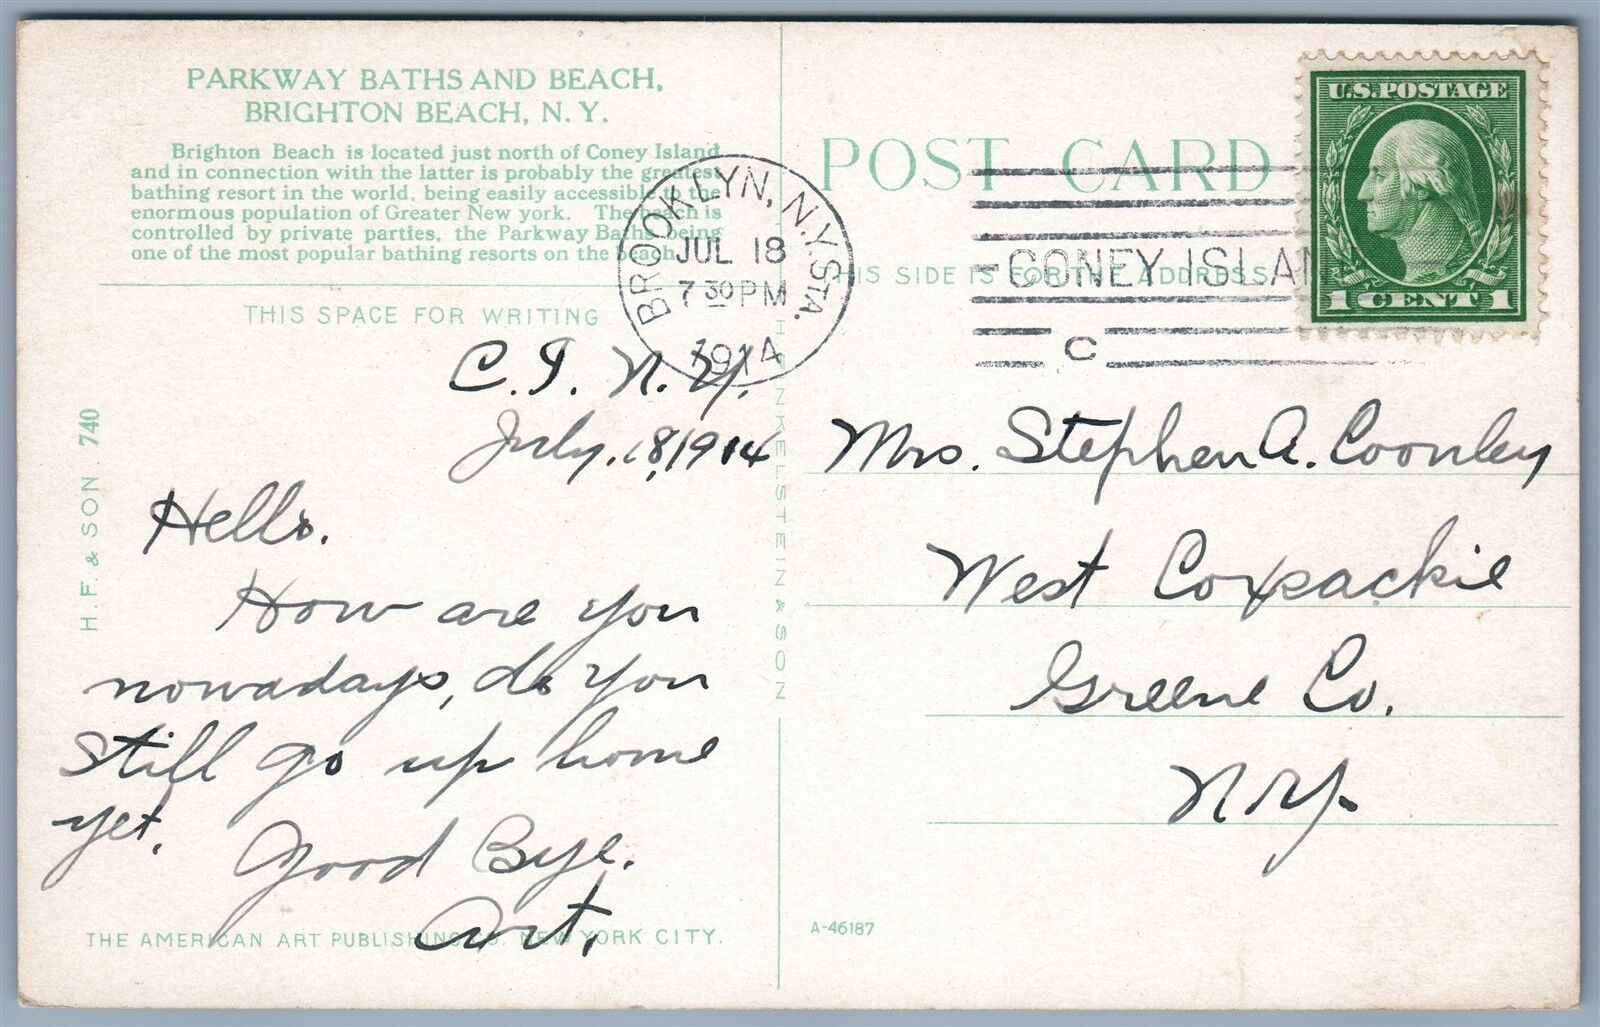 PARKWAY BATHS AND BEACH,
BRIGHTON BEACH, N. Y.
Brighton Beach is located just north of Coney Island
and in connection with the latter is probably the greatest
bathing resort in the world, being easily accessible to the
enormous population of Greater New york. The beach is
controlled by private parties, the Parkway Baths being
one of the most popular bathing resorts on the beach.
THIS SPACE FOR WRITING
C. I. N. Y.
July, 18, 1914
Hello.
How are you
nowadays, do you
still go up home
yet.
Good Bye.
Art.
THE AMERICAN ART PUBLISHING CO. NEW YORK CITY.
H. F. & SON. 740
H. FINKELSTEIN & SON
BROOKLYN, N.Y. STA.
JUL 18
7 30 PM
1914
POST CARD
THIS SIDE IS FOR THE ADDRESS
CONEY ISLAN
C
U.S. POSTAGE
1 CENT 1
Mrs. Stephen A. Coonley
West Coxsackie
Greene Co.
N.Y.
A-46187